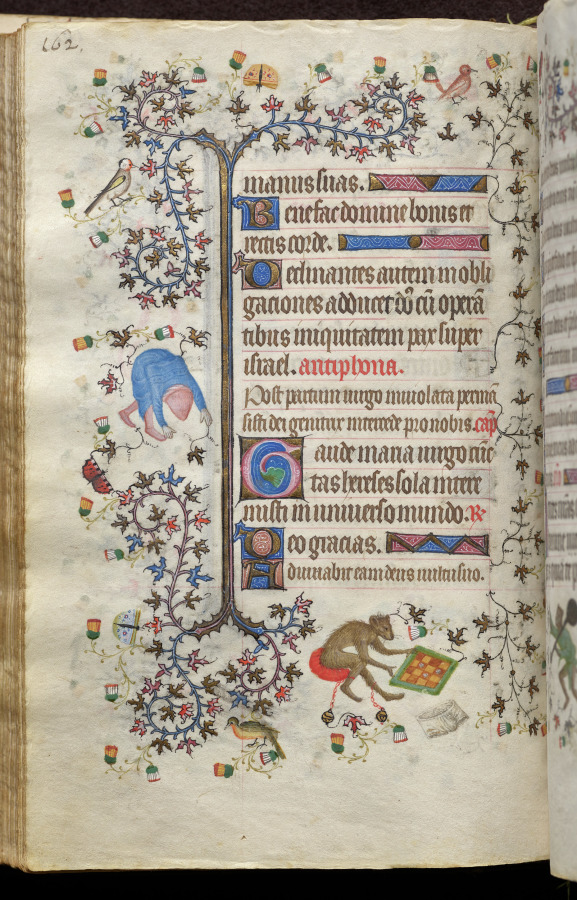 162.
manus suas.
Benefac domine bonis et
rectis corde.
Declinantes autem in obli
gaciones adducet dñs cũ operã
tibus iniquitatem pax super
israel. antiphona.
Post partum virgo inviolata permã
sisti dei genitrix intercede pro nobis. cap̃
Gaude maria virgo cũc
tas hereses sola intere
misti in universo mundo. R̷
Deo gracias.
Adiuvabit eam deus vultu suo.